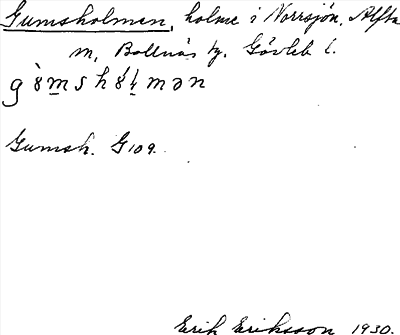 Gumsholmen, holme i Norrsjön, Alfta
m, Bollnäs tg. Gävleb l.
Gumsh. G 109.
Erik Eriksson 1930.